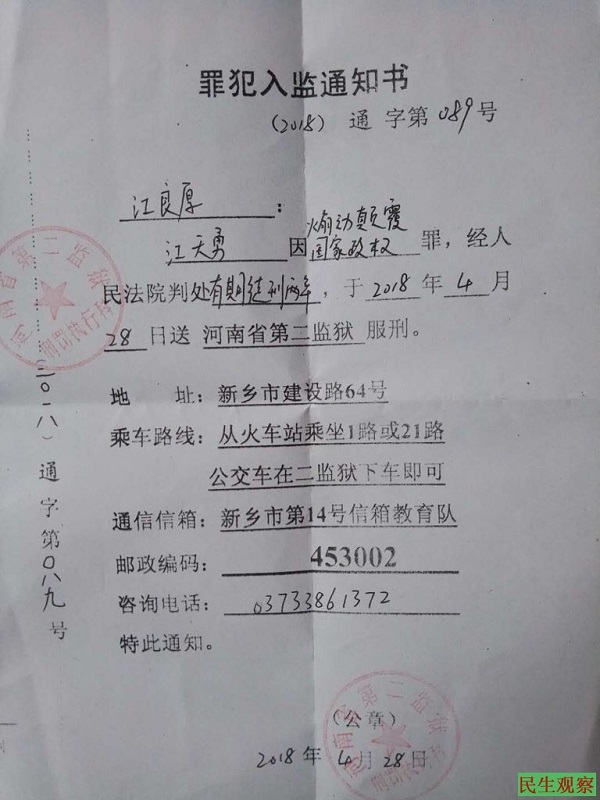 罪犯入监通知书
(2018) 通 字第 089 号
江良厚:
江天勇 因 煽动颠覆
国家政权 罪,经人
民法院判处有期徒刑两年,于 2018 年 4 月
28 日送 河南省第二监狱 服刑。
地 址:新乡市建设路64号
乘车路线:从火车站乘坐1路或21路
公交车在二监狱下车即可
通信信箱:新乡市第14号信箱教育队
邮政编码:453002
咨询电话:03733861372
特此通知。
(公章)
2018 年 4 月 28 日
(二〇一八)通字第〇八九号
河南省第二监狱
刑罚执行科
河南省第二监狱
刑罚执行科
民生观察